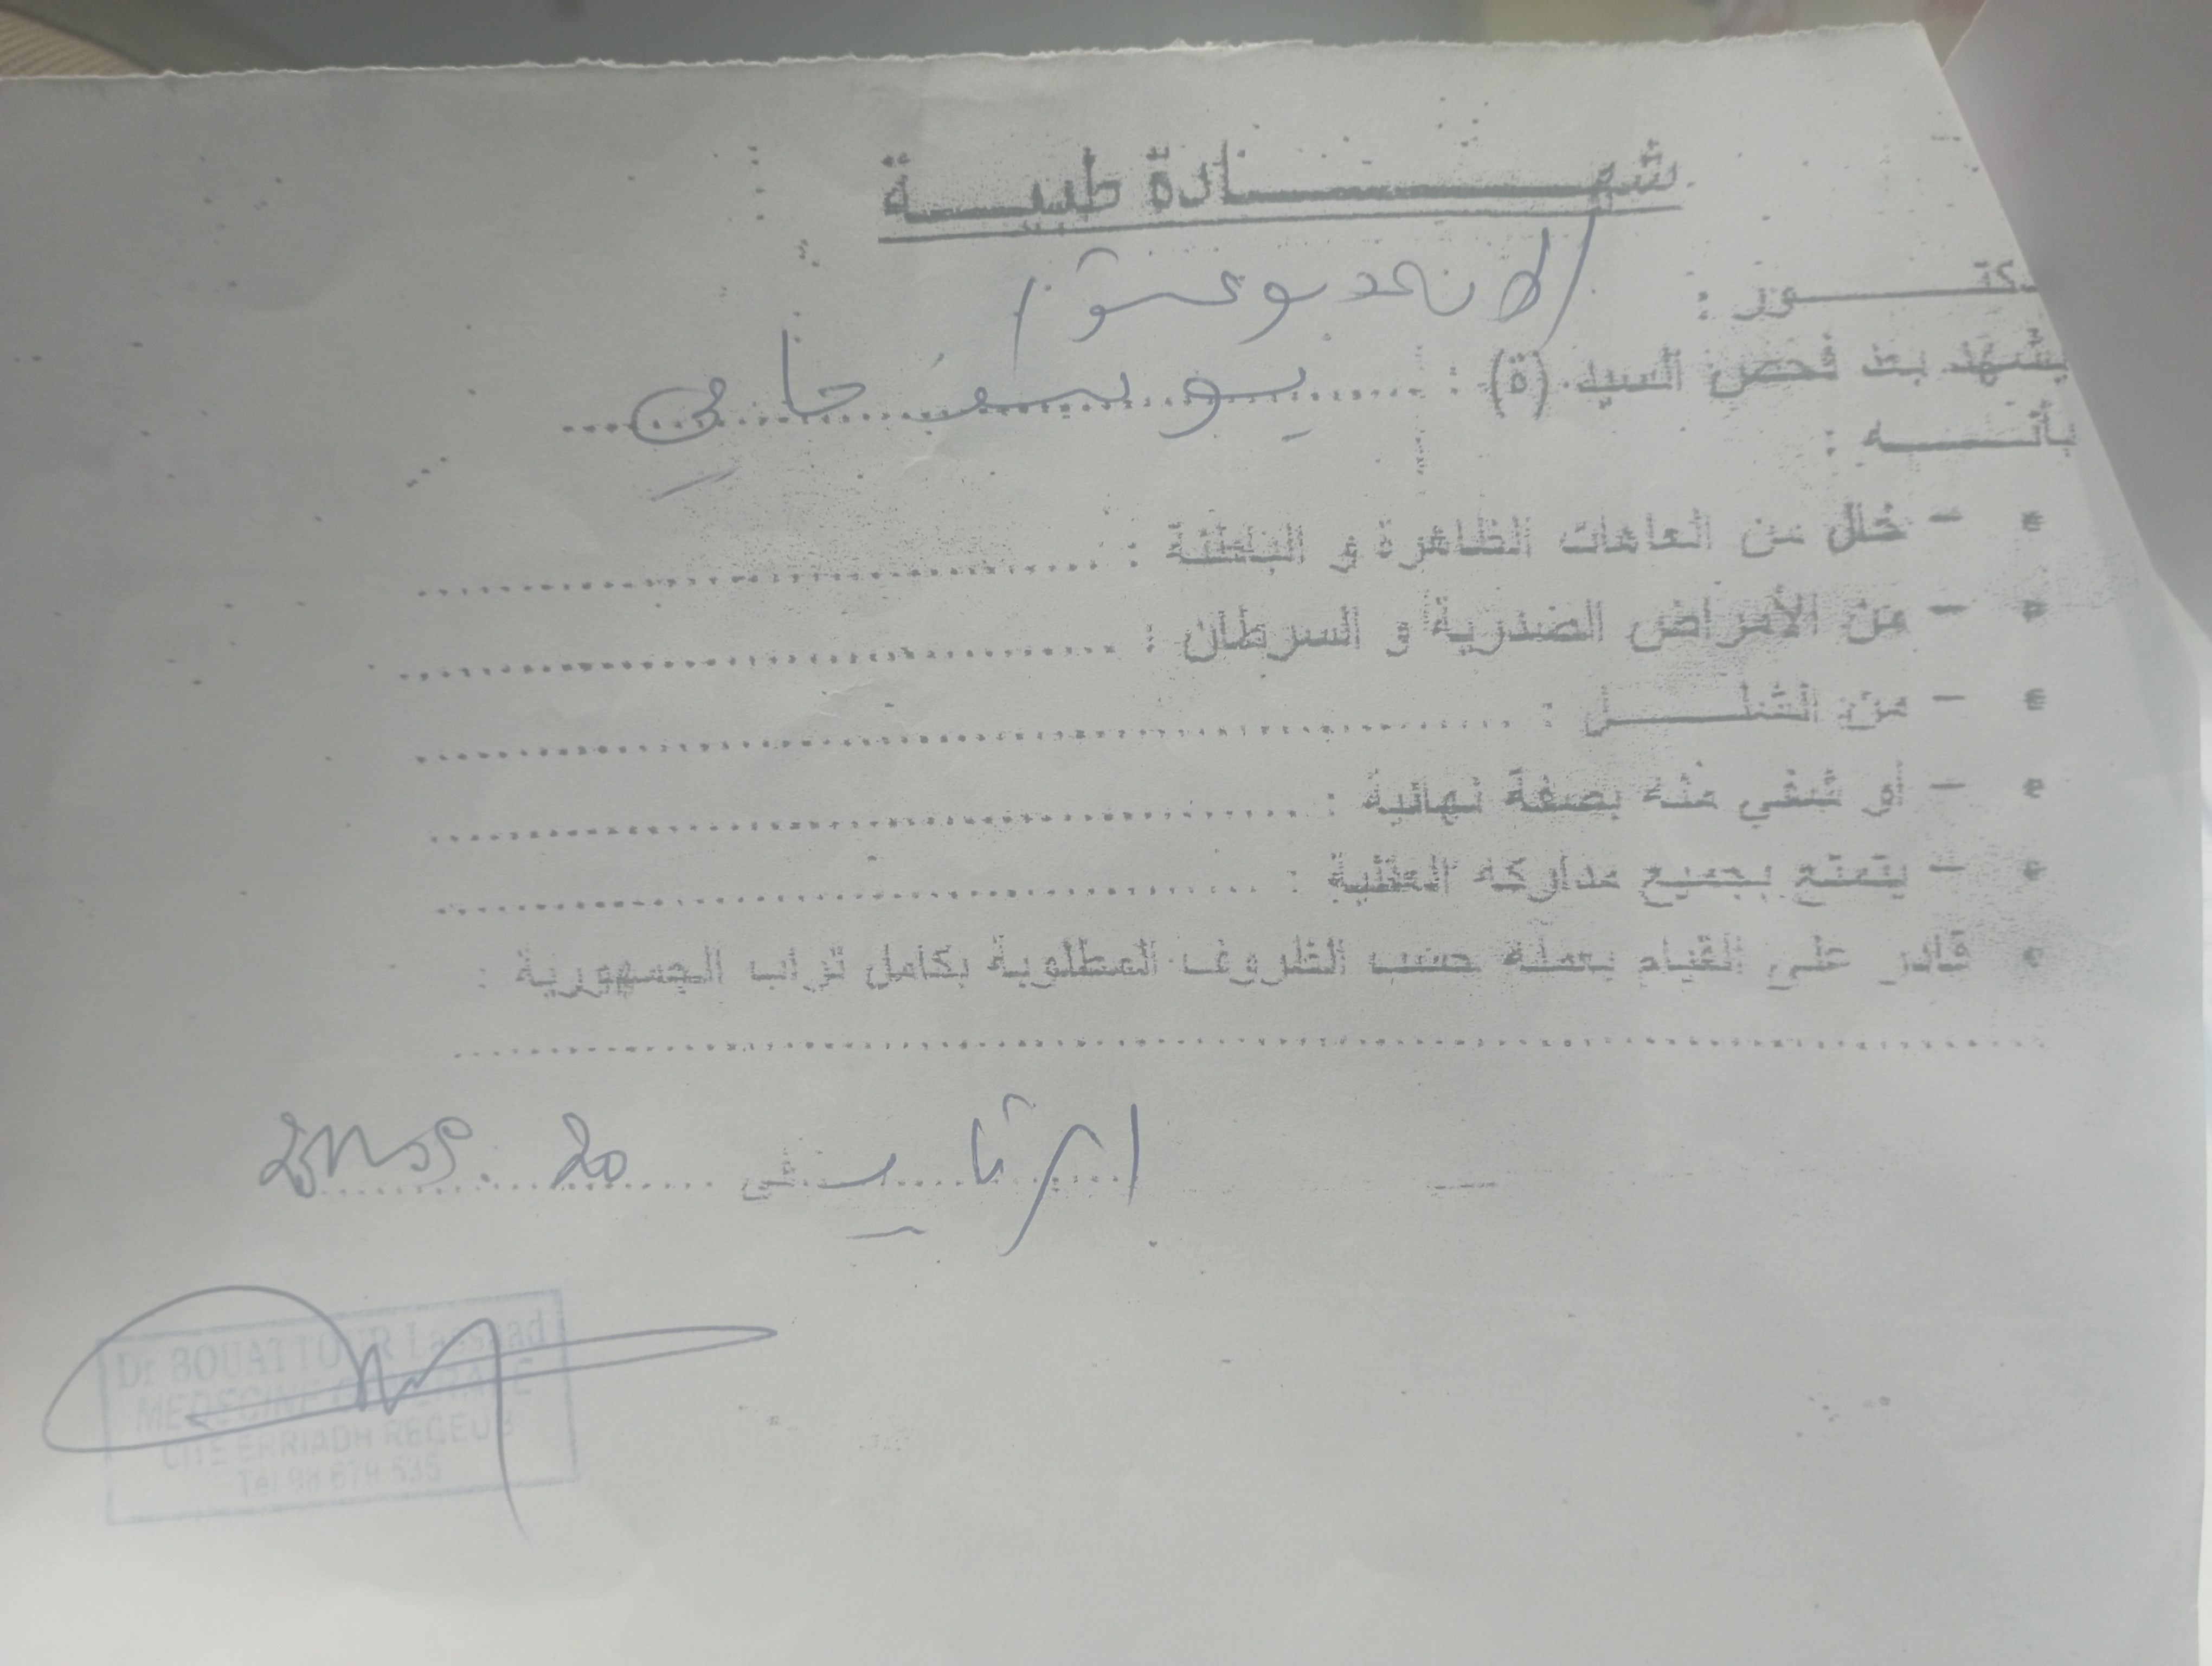 شهادة طبية
دكتور :
يشهد بعد فحص السيد (ة) : يوسف حامي
بأنه :
- خال من العاهات الظاهرة و الباطنة :
- من الأمراض الصدرية و السرطان :
- من الشلل :
- أو شفي منه بصفة نهائية :
- يتمتع بجميع مداركه العقلية :
قادر على القيام بعمله حسب الظروف المطلوبة بكامل تراب الجمهورية :
في 20
Dr BOUATTOUR Lassaad
MEDECINE GENERALE
CITE ERRIADH REGEUB
Tel 98 679 535